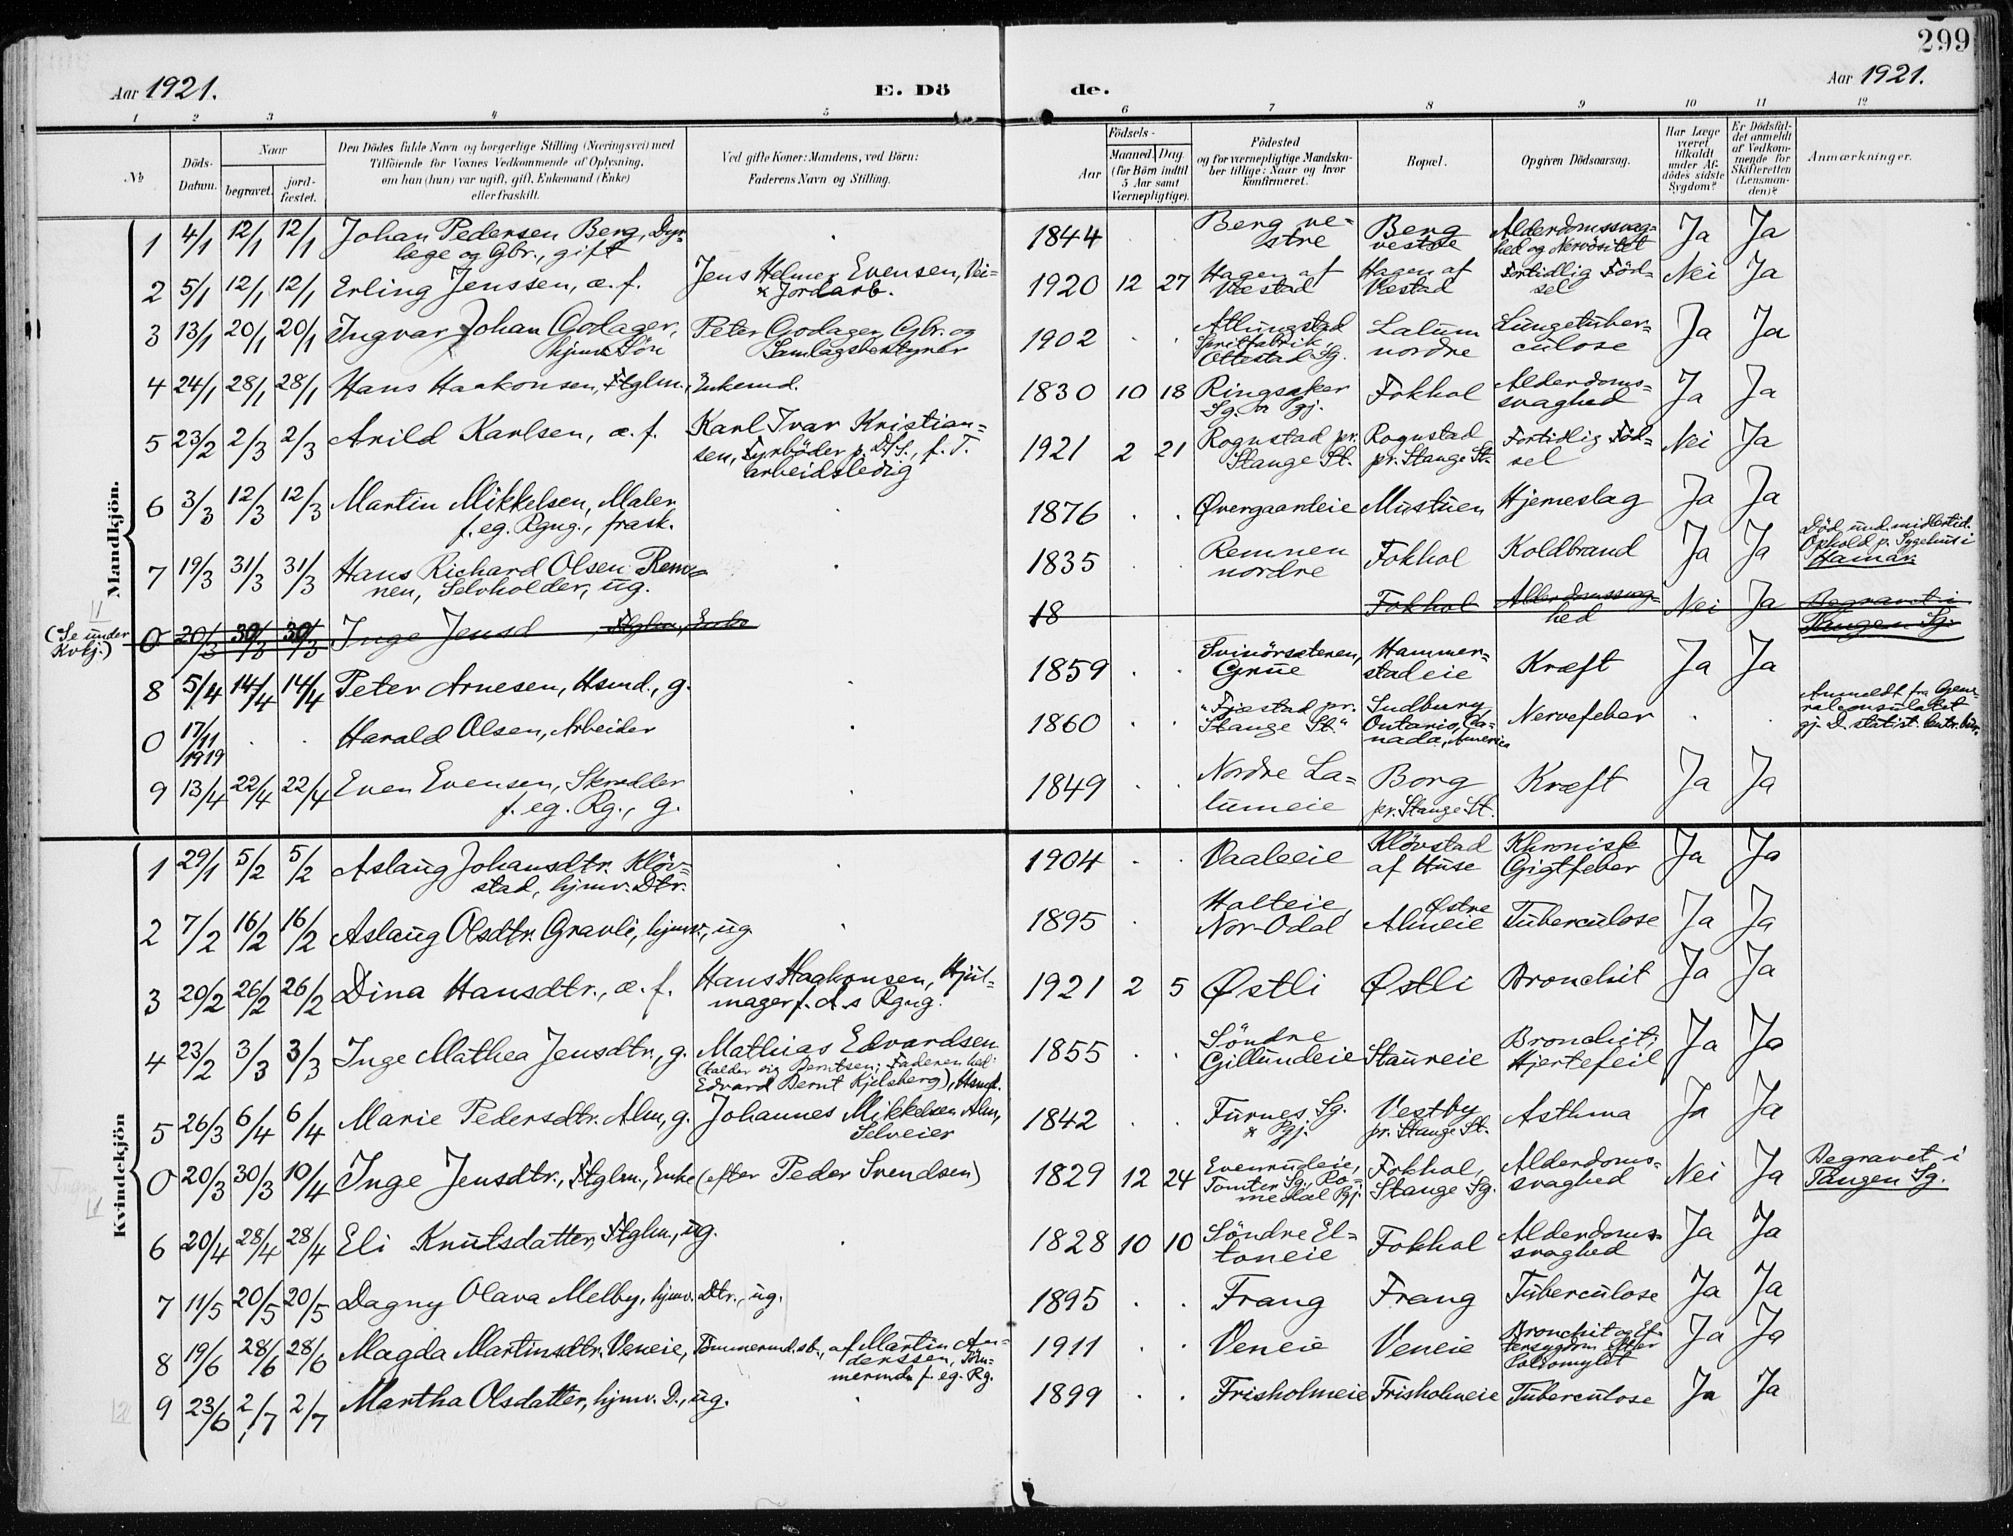 299
Aar 1921.
E. Dö
de.
Aar 1921.
1 2 3 4 5 6 7 8 9 10 11 12
№
Döds-
Datum.
Naar
begravet.
jord-
fæstet.
Den Dödes fulde Navn og borgerlige Stilling (Næringsvei) med
Tilföiende for Voxnes Vedkommende af Oplysning,
om han (hun) var ugift, gift, Enkemand (Enke)
eller fraskilt.
Ved gifte Koner: Mandens, ved Börn:
Faderens Navn og Stilling.
Födsels-
Aar
Maaned. Dag
(for Börn indtil
5 Aar samt
Værnepligtige).
Födested
og for værnepligtige Mandska-
ber tillige: Naar og hvor
Konfirmeret.
Bopæl.
Opgiven Dödsaarsag.
Har Læge
været
tilkaldt
under Af-
dödes sidste
Sygdom?
Er Dödsfal-
det anmeldt
af Vedkom-
mende for
Skifteretten
(Lensman-
den)?
Anmærkninger.
Mandkjön.
1 4/1 12/1 12/1 Johan Pedersen Berg, Dyr-
læge og Gbr., gift
1844 Berg ve-
stre
Berg
vestre
Alderdomssvag-
hed og Nervösitet
Ja Ja
2 5/1 12/1 12/1 Erling Jenssen, æ. f.
Jens Helmer Evensen, Vei-
& Jordarb.
1920 12 27 Hagen af
Væstad
Hagen af
Væstad
Fortidlig Föd-
sel
Nei Ja
3 13/1 20/1 20/1 Ingvar Johan Godager,
hjmv. Sön
Peter Godager, Gbr. og
Samlagsbestyrer
1902 Atlungstad
Spritfabrik
Ottestad Sg.
Lalum
nordre
Lungetuber-
culose
Ja Ja
4 24/1 28/1 28/1 Hans Haakonsen, Ftglm., Enkemd.
1830 10 18 Ringsaker
Sg. & Pgj.
Fokhol
Alderdoms-
svaghed
Ja Ja
5 23/2 2/3 2/3 Arild Karlsen, æ. f.
Karl Ivar Kristian-
sen, Fyrböder p. D/S., f. T.
arbeidsledig
1921 2 21 Rognstad pr.
Stange St.
Rognstad
pr. Stange St.
Fortidlig Föd-
sel
Nei Ja
6 3/3 12/3 12/3 Martin Mikkelsen, Maler
f. eg. Rgng., frask.
1876 Øvergaardeie Mustuen Hjerneslag Ja Ja
7 19/3 31/3 31/3 Hans Richard Olsen Rem-
nen, Selvholder, ug.
1835 Remnen
nordre
Fokhol Koldbrand Ja Ja
Död und. midlertid.
Ophold p. Sygehus i
Hamar.
(Se under
Kvkj.)
0 20/3 30/3 30/3 Inge Jensd Ftglm, Enke
18 Fokhol
Alderdomssvag-
hed
Nei Ja
Begravet i
Tangen Sg.
8 5/4 14/4 14/4 Peter Arnesen, Hsmd., g.
1859 Svinörsæteren,
Grue
Hammer-
stadeie
Kræft Ja Ja
0 17/11 1919 Harald Olsen, Arbeider
1860 "Fjæstad pr.
Stange St."
Sudbury
Ontario, Ca-
nada, Amerika
Nervefeber
Anmeldt fra Gene-
ralconsulatet
gj. D. statist. Centr.bür.
9 13/4 22/4 22/4 Even Evensen, Skrædder
f. eg. Rg., g.
1849 Nordre La-
lumeie
Borg
pr. Stange St.
Kræft Ja Ja
Kvindekjön
1 29/1 5/2 5/2 Aslaug Johansdtr. Klöv-
stad, hjmv. Dtr.
1904 Vaaleeie
Klövstad
af Huse
Khronisk
Gigtfeber
Ja Ja
2 7/2 16/2 16/2 Aslaug Olsdtr. Gravli, hjmv., ug
1895 Holteie,
Nor-Odal
Østre
Almeie
Tuberculose Ja Ja
3 20/2 26/2 26/2 Dina Hansdtr., æ. f.
Hans Haakonsen, Hjul-
mager f. d. s Rgng.
1921 2 5 Østli Østli Bronchit Ja Ja
4 23/2 3/3 3/3 Inge Mathea Jensdtr., g.
Mathias Edvardsen
(kalder sig Berntsen; Faderen hed
Edvard Bernt Kjelsberg), Hsmd.
1855 Söndre
Gillundeie
Staureie
Bronchit;
Hjertefeil
Ja Ja
5 26/3 6/4 6/4 Marie Pedersdtr. Alm, g.
Johannes Mikkelsen Alm,
Selveier
1842 Furnes Sg.
& Pgj.
Vestby
pr. Stange St.
Asthma Ja Ja
0 20/3 30/3 10/4 Inge Jensdtr., Ftglm., Enke (efter Peder Svendsen)
1829 12 24 Evenrudeie,
Tomter Sg., Ro-
medal Pgj.
Fokhol,
Stange Sg.
Alderdoms-
svaghed
Nei Ja
Begravet i
Tangen Sg.
6 20/4 28/4 28/4 Eli Knutsdatter, Ftglm., ug.
1828 10 10 Söndre El-
toneie
Fokhol
Alderdoms-
svaghed
Ja Ja
7 11/5 20/5 20/5 Dagny Olava Melby, hjmv. Dtr., ug.
1895 Frang Frang Tuberculose Ja Ja
8 19/6 28/6 28/6 Magda Martinsdtr. Veneie, Tömmermd.sb., af Martin An-
derssen, Töm-
mermd. f. eg. Rg.
1911 Veneie Veneie
Bronchit og Ef-
tersygdom efter
Poliomylit
Ja Ja
9 23/6 2/7 2/7 Martha Olsdatter, hjmv. D., ug.
1899 Frisholmeie Frisholmeie Tuberculose Ja Ja